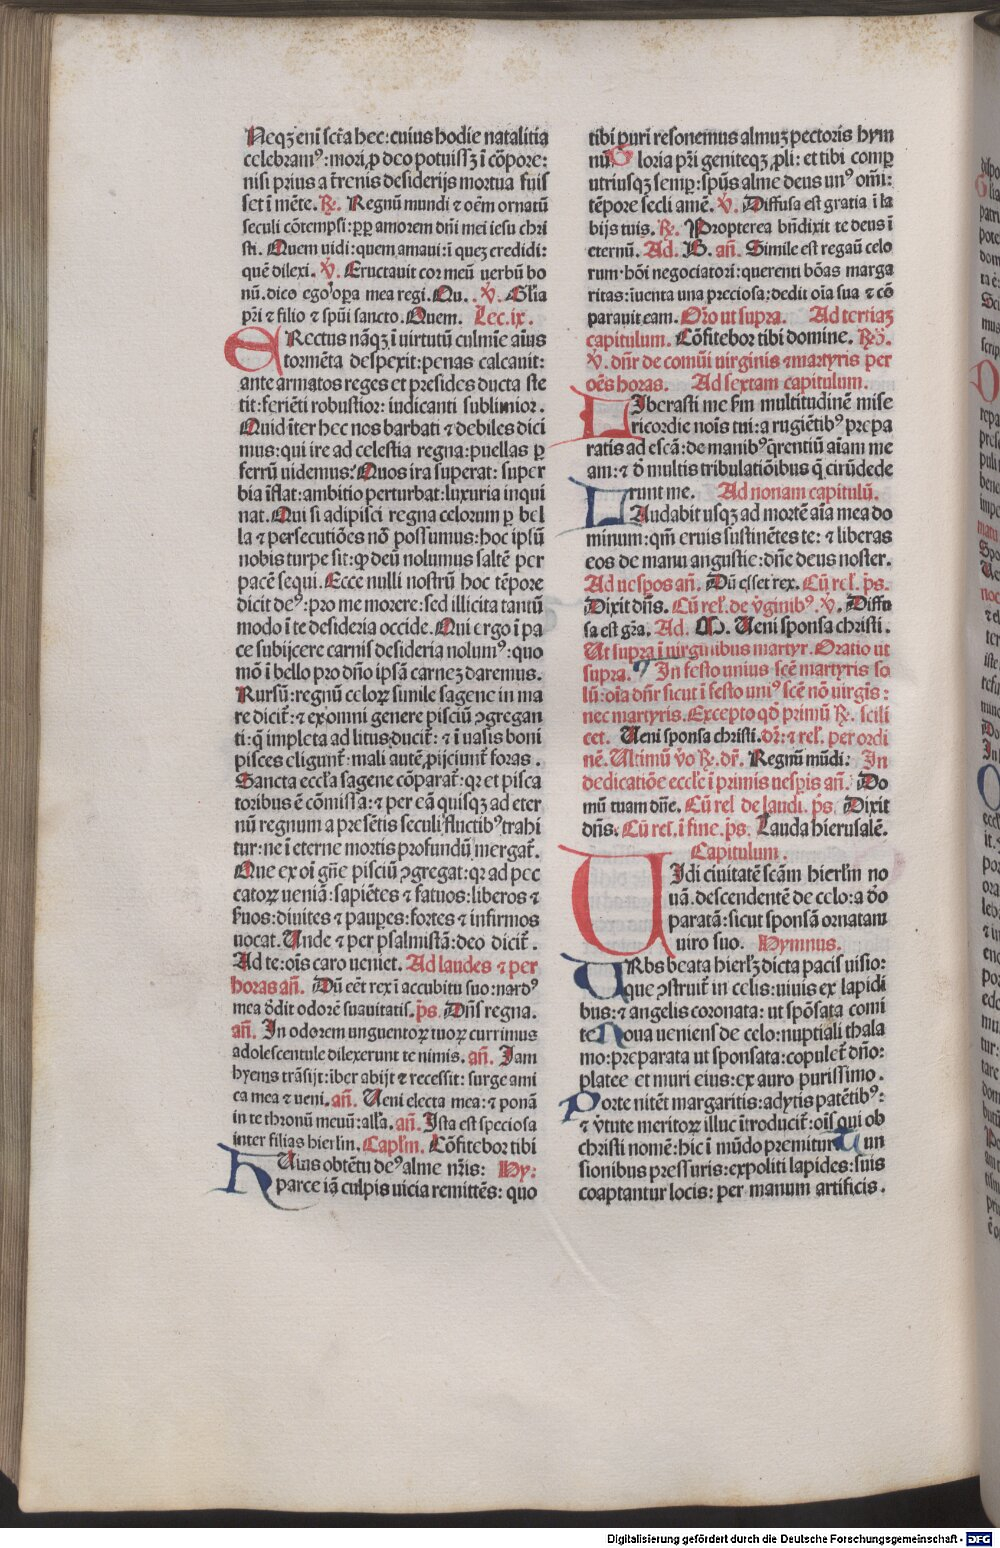 Neqꝫ eni᷒ sct̃a hec: cuius hodie natalitia
celebramꝰ: mori ꝓ deo potuissꝫ ĩ cõpore:
nisi prius a t̃renis desiderijs mortua fuis
set ĩ mẽte. R̃. Regnũ mundi ⁊ oẽm ornatũ
seculi cõtempsi: ꝓp̃ amorem dñi mei iesu chri
sti. Quem uidi: quem amaui: ĩ queꝫ credidi:
quẽ dilexi. V̓. Eructauit cor meũ uerbũ bo
nũ. dico ego opera mea regi. Qu. V̓. Gl̃ia
p̃ri ⁊ filio ⁊ sp̃ui sancto. Quem. Lec. ix.
ERectus nãqꝫ ĩ uirtutũ culmĩe aĩus
tormẽta despexit: penas calcauit:
ante armatos reges et presides ducta ste
tit: feriẽti robustior: iudicanti sublimior.
Quid ĩter hec nos barbati ⁊ debiles dici
mus: qui ire ad celestia regna: puellas ꝑ
ferrũ uidemus? Quos ira superat: super
bia ĩflat: ambitio perturbat: luxuria inqui
nat. Qui si adipisci regna celorum ꝑ bel
la ⁊ persecutiões nõ possumus: hoc ip̃sũ
nobis turpe sit: ꝙ deũ nolumus saltẽ per
pacẽ sequi. Ecce nulli nostrũ hoc tẽpore
dicit deꝰ: pro me morere: sed illicita tantũ
modo ĩ te desideria occide. Qui ergo ĩ pa
ce subijcere carnis desideria nolumꝰ: quo
mõ ĩ bello pro dño ip̃sã carneꝫ daremus.
Rursũ: regnũ celoꝝ simile sagene in ma
re dicit̃: ⁊ ex omni genere pisciũ ꝯgregan
ti: q̃ impleta ad litus ducit̃: ⁊ ĩ uasis boni
pisces eligunt̃: mali autẽ pijciunt̃ foras.
Sancta eccl̃a sagene cõparat̃: qr et pisca
toribus ẽ cõmissa: ⁊ per eã quisqꝫ ad eter
nũ regnum a presẽtis seculi fluctibꝰ trahi
tur: ne ĩ eterne mortis profundũ mergat̃.
Que ex oĩ gñe pisciũ ꝯgregat: qr ad pec
catoꝝ ueniã: sapiẽtes ⁊ fatuos: liberos ⁊
s̃uos: diuites ⁊ paupes: fortes ⁊ infirmos
uocat. Unde ⁊ per psalmistã: deo dicit̃.
Ad te: oĩs caro ueniet. Ad laudes ⁊ per
horas añ. Dũ eẽt rex ĩ accubitu suo: nardꝰ
mea d̓dit odorẽ suauitatis. p̃s. Dñs regna.
añ. In odorem unguentoꝝ tuoꝝ currimus
adolescentule dilexerunt te nimis. añ. Iam
hyems trãsijt: iber abijt ⁊ recessit: surge ami
ca mea ⁊ ueni. añ. Ueni electa mea: ⁊ ponã
in te thronũ meuũ: all̃a. añ. Ista est speciosa
inter filias hierl̃m. Capl̃m. Cõfitebor tibi
HUius obtẽtu deꝰ alme nr̃is: Hy:
parce iã culpis uicia remittẽs: quo
tibi puri resonemus almuꝫ pectoris hym
nũ. Gloria p̃ri geniteqꝫ ꝓli: et tibi comp
utriusqꝫ semp: sp̃us alme deus unꝰ om̃i:
tẽpore sẽcli amẽ. V̓. Diffusa est gratia ĩ la
bijs tuis. R̃. Propterea bñdixit te deus ĩ
eternũ. Ad. B. añ. Simile est regnũ celo
rum hõi negociatori: querenti bõas marga
ritas: ĩuenta una preciosa: dedit oĩa sua ⁊ cõ
parauit eam. Or̃o ut supra. Ad tertiaꝫ
capitulum. Cõfitebor tibi domine. R̃.
V̓. dñr de comũi uirginis ⁊ martyris per
oẽs horas. Ad sextam capitulum.
LIberasti me s̃m multitudinẽ mise
ricordie nois tui: a rugiẽtibꝰ prepa
ratis ad escã: de manibꝰ q̃rentiũ aĩam me
am: ⁊ d̓ multis tribulatiõibus q̃ circũdede
runt me. Ad nonam capitulũ.
LAudabit usqꝫ ad mortẽ aĩa mea do
minum: qm̃ eruis sustinẽtes te: ⁊ liberas
eos de manu angustie: dñe deus noster.
Ad uespos añ. Dũ esset rex. Cũ rel̃. p̃s.
Dixit dñs. Cũ rel̃. de v̓ginibꝰ. V̓. Diffu
sa est gr̃a. Ad. M. Ueni sponsa christi.
Ut supra ĩ uirginibus martyr. Oratio ut
supra. In festo unius scẽ martyris so
lũ: oĩa dñr sicut ĩ festo uniꝰ scẽ nõ uirgĩs:
nec martyris. Excepto qd̓ primũ R̃. scili
cet. Ueni sponsa christi. dr̃: ⁊ rel̃. per ordi
nẽ. Ultimũ v̓o R̃. dr̃. Regnũ mũdi: In
dedicatiõe eccl̃e ĩ primis uesp̃is añ. Do
mũ tuam dñe. Cũ rel de laudi. p̃s. Dixit
dñs. Cũ rel̃. ĩ fine. p̃s. Lauda hierusalẽ.
Capitulum.
UIdi ciuitatẽ scãm hierl̃m no
uã. descendentẽ de celo: a d̓o
paratã: sicut sponsã ornatam
uiro suo. Hymnus.
URbs beata hierl̃ꝫ dicta pacis uisio:
que ꝯstruit̃ in celis: uiuis ex lapidi
bus: ⁊ angelis coronata: ut spõsata comi
te. Noua ueniens de celo: nuptiali thala
mo: preparata ut sponsata: copulet̃ dño:
platee et muri eius: ex auro purissimo.
Porte nitẽt margaritis: adytis patẽtibꝰ:
⁊ v̓tute meritoꝝ illuc ĩtroducit̃: oĩs qui ob
christi nomẽ: hic ĩ mũdo premitur. Tun
sionibus pressuris: expoliti lapides: suis
coaptantur locis: per manum artificis.
Digitalisierung gefördert durch die Deutsche Forschungsgemeinschaft - DFG